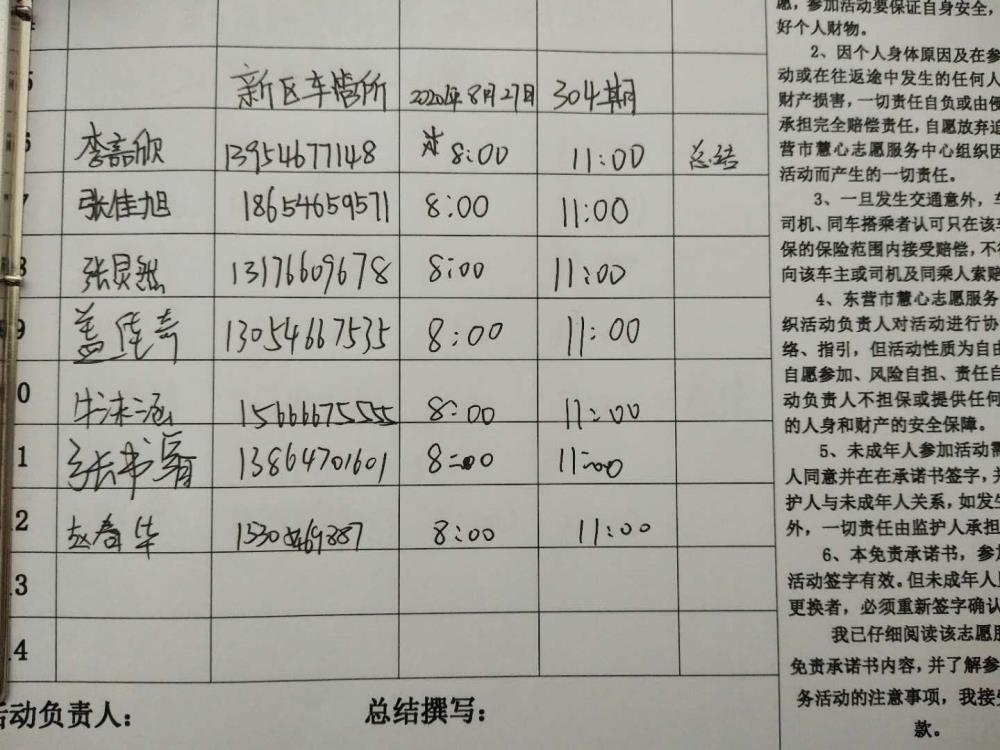 5 新区车管所 2020年8月27日 304期
6 李嘉欣 13954677148 8:00 11:00 总结
7 张佳旭 18654659571 8:00 11:00
8 张炅然 13176609678 8:00 11:00
9 盖佳奇 13054667535 8:00 11:00
0 牛沫涵 15666675555 8:00 11:00
1 张书 13864701601 8:00 11:00
2 赵春华 8:00 11:00
3
4
活动负责人： 总结撰写：
愿，参加活动要保证自身安全，
好个人财物。
2、因个人身体原因及在参
动或在往返途中发生的任何人
财产损害，一切责任自负或由侵
承担完全赔偿责任，自愿放弃追
营市慧心志愿服务中心组织因
活动而产生的一切责任。
3、一旦发生交通意外，车
司机、同车搭乘者认可只在该车
保的保险范围内接受赔偿，不
向该车主或司机及同乘人索赔
4、东营市慧心志愿服务
织活动负责人对活动进行协
络、指引，但活动性质为自由
自愿参加、风险自担、责任自
动负责人不担保或提供任何
的人身和财产的安全保障。
5、未成年人参加活动需
人同意并在在承诺书签字，并
护人与未成年人关系，如发生
外，一切责任由监护人承担
6、本免责承诺书，参加
活动签字有效。但未成年人
更换者，必须重新签字确认
我已仔细阅读该志愿服
免责承诺书内容，并了解参
务活动的注意事项，我接受
款。